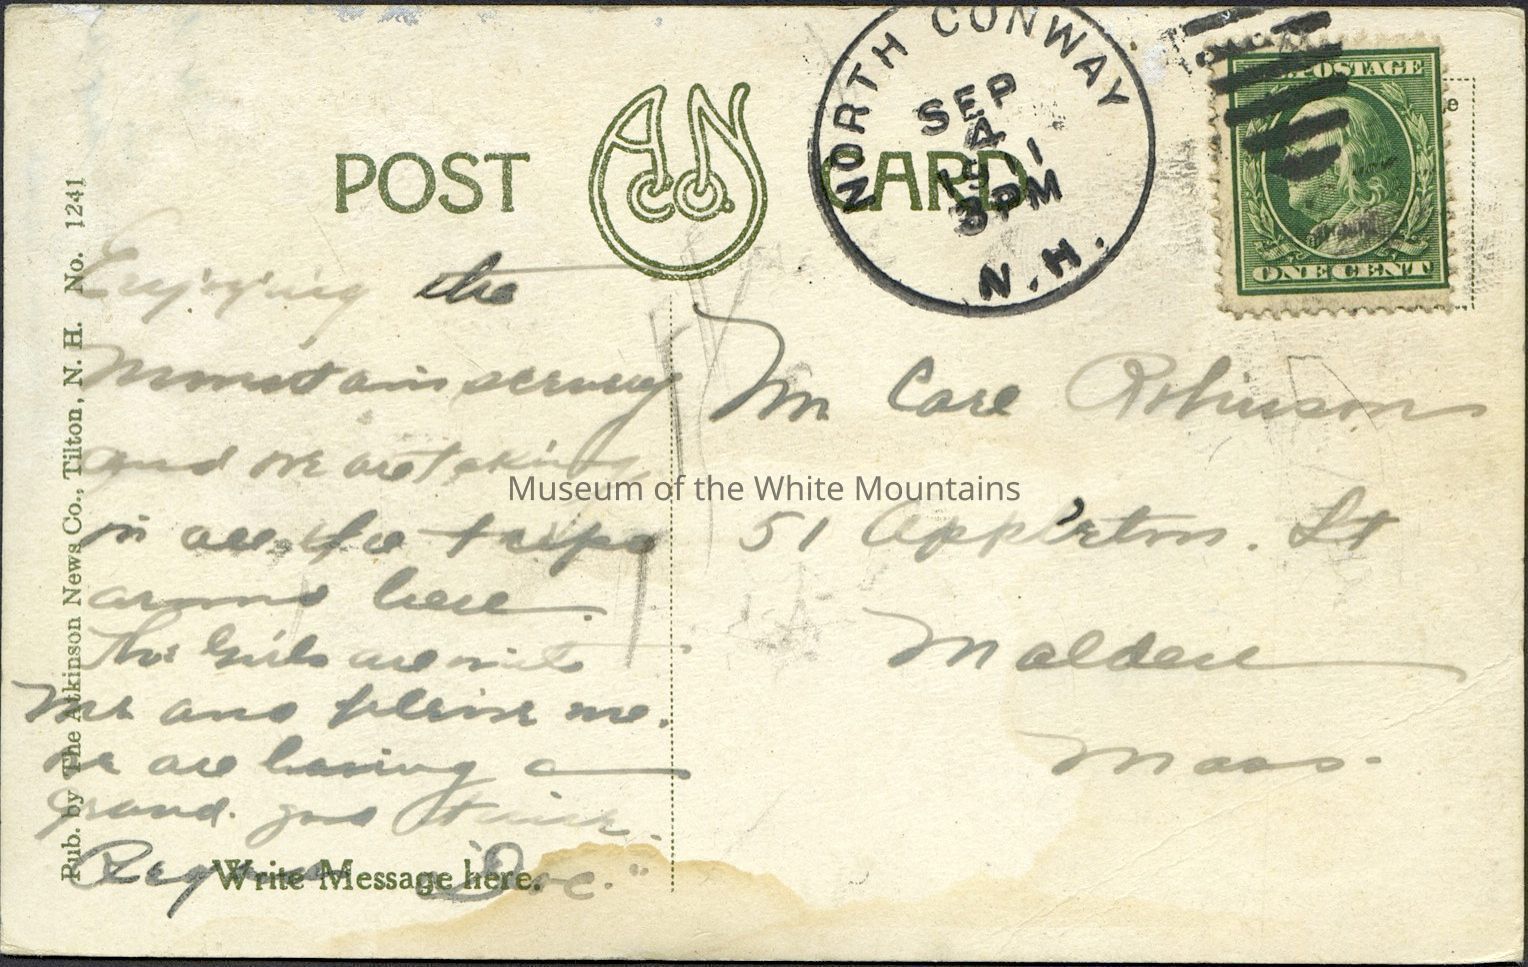 POST CARD
A N Co.
NORTH CONWAY
SEP
4
3 PM
N.H.
POSTAGE
ONE CENT
Pub. by The Atkinson News Co., Tilton, N. H. No. 1241
Enjoying the
Mountain scenery
and we are taking
in all the trips
around here
The Girls are with
me and please me.
we are having a
grand good time.
"Doc."
Write Message here.
Robinson
51 Appleton. St
Malden
Mass.
Museum of the White Mountains